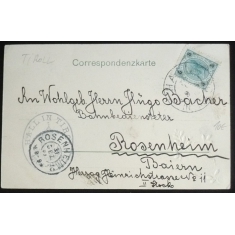 T/ Hall
Correspondenzkarte
An Wohlgeb. Herrn Hugo Bacher
Bahnbediensteter
Rosenheim
Baiern
Herzog Heinrichstrasse № 11
II Stock
HALL IN TIR
ROSENHEIM